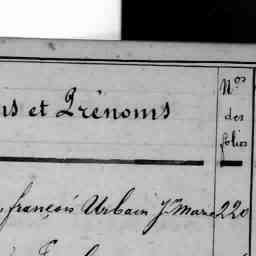 ns et Prénoms
Nos
des
folios
françois Urbain Jn Marie 220